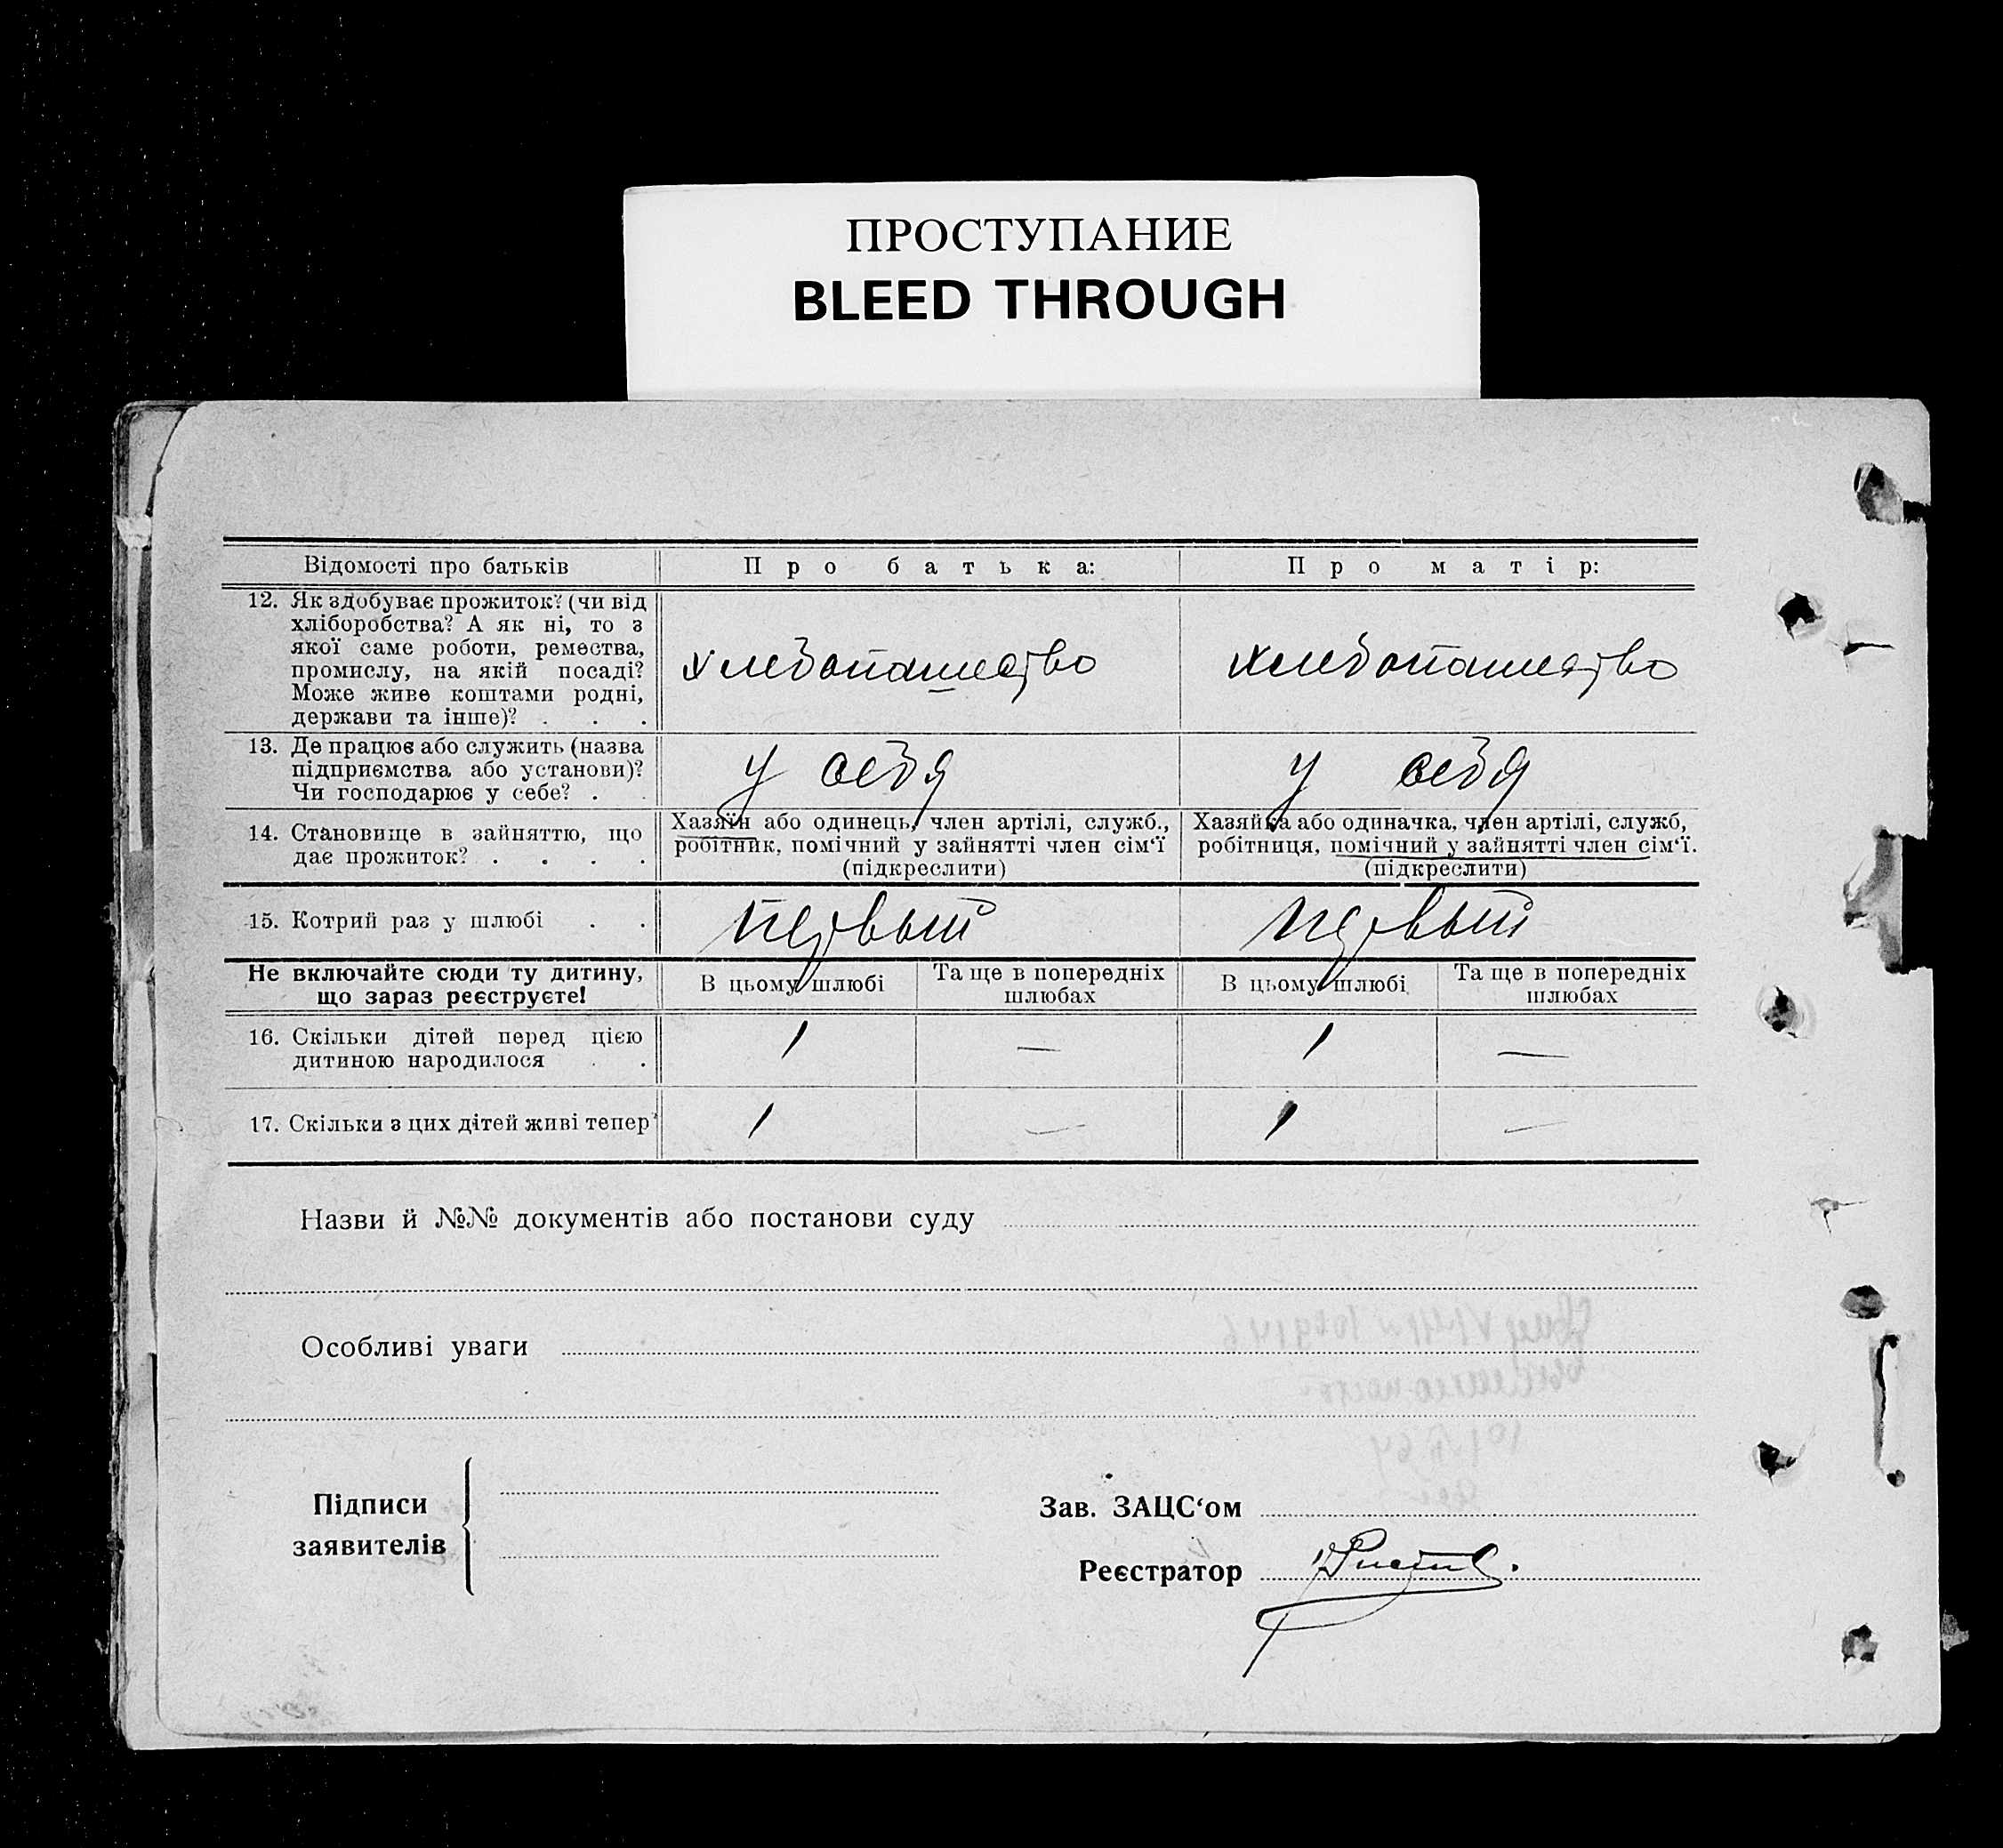 ПРОСТУПАНИЕ
BLEED THROUGH
Відомості про батьків
Про батька:
Про матір:
12. Як здобуває прожиток? (чи від
хліборобства? А як ні, то з
якої саме роботи, ремества,
промислу, на якій посаді?
Може живе коштами родні,
держави та інше)? . . .
хлебопашество
хлебопашество
13. Де працює або служить (назва
підприємства або установи)?
Чи господарює у себе? .
у себя
у себя
14. Становище в зайняттю, що
дає прожиток? . . . .
Хазяїн або одинець, член артілі, служб.,
робітник, помічний у зайнятті член сім'ї
(підкреслити)
Хазяйка або одиначка, член артілі, служб,
робітниця, помічний у зайнятті член сім'ї.
(підкреслити)
15. Котрий раз у шлюбі . .
первый
первый
Не включайте сюди ту дитину,
що зараз реєструєте!
В цьому шлюбі
Та ще в попередніх
шлюбах
В цьому шлюбі
Та ще в попередніх
шлюбах
16. Скільки дітей перед цією
дитиною народилося . .
1
—
1
—
17. Скільки з цих дітей живі тепер
1
—
1
—
Назви й №№ документів або постанови суду
Особливі уваги
Підписи
заявителів
Зав. ЗАЦС'ом
Реєстратор